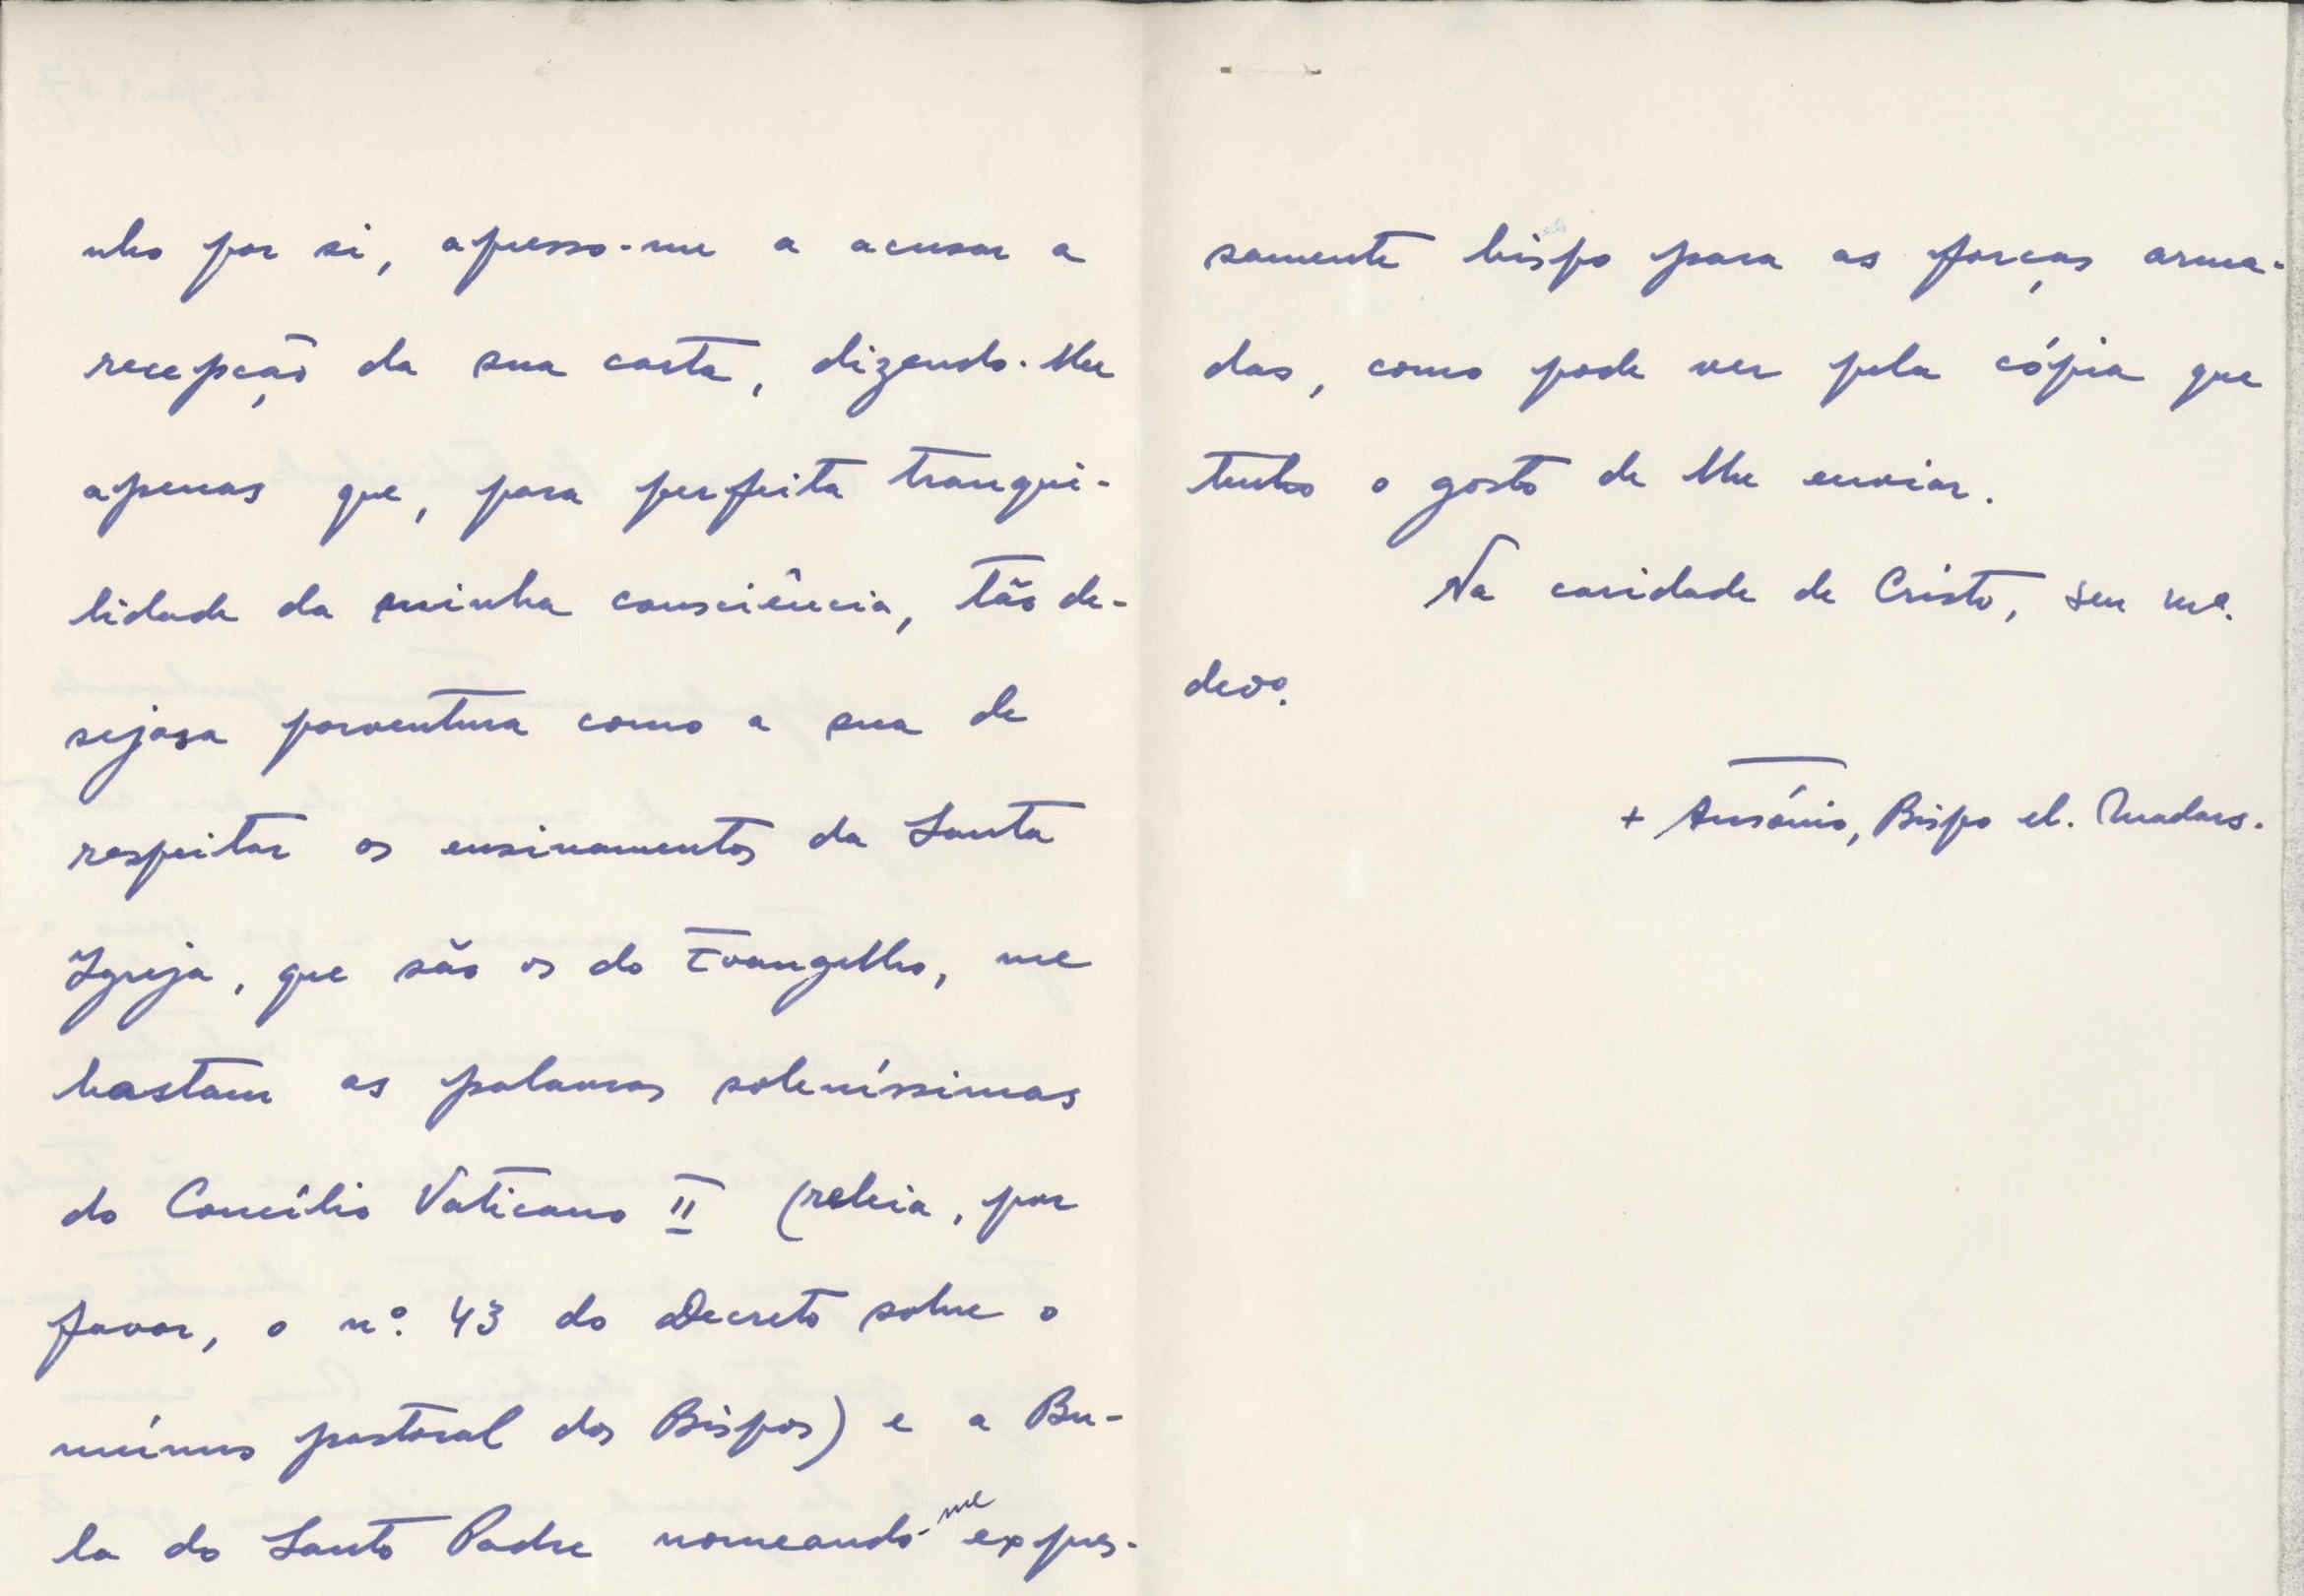 nho por si, apresso-me a acusar a
recepção da sua carta, dizendo-lhe
apenas que, para perfeita tranqui-
lidade da minha consciência, tão de-
sejosa porventura como a sua de
respeitar os ensinamentos da Santa
Igreja, que são os do Evangelho, me
bastam as palavras soleníssimas
do Concílio Vaticano II (releia, por
favor, o nº. 43 do Decreto sobre o
múnus pastoral dos Bispos) e a Bu-
la do Santo Padre nomeando-me expres-
samente bispo para as forças arma-
das, como pode ver pela cópia que
tenho o gosto de lhe enviar.
Na caridade de Cristo, seu mº.
devº.
+ António, Bispo el. Madars.